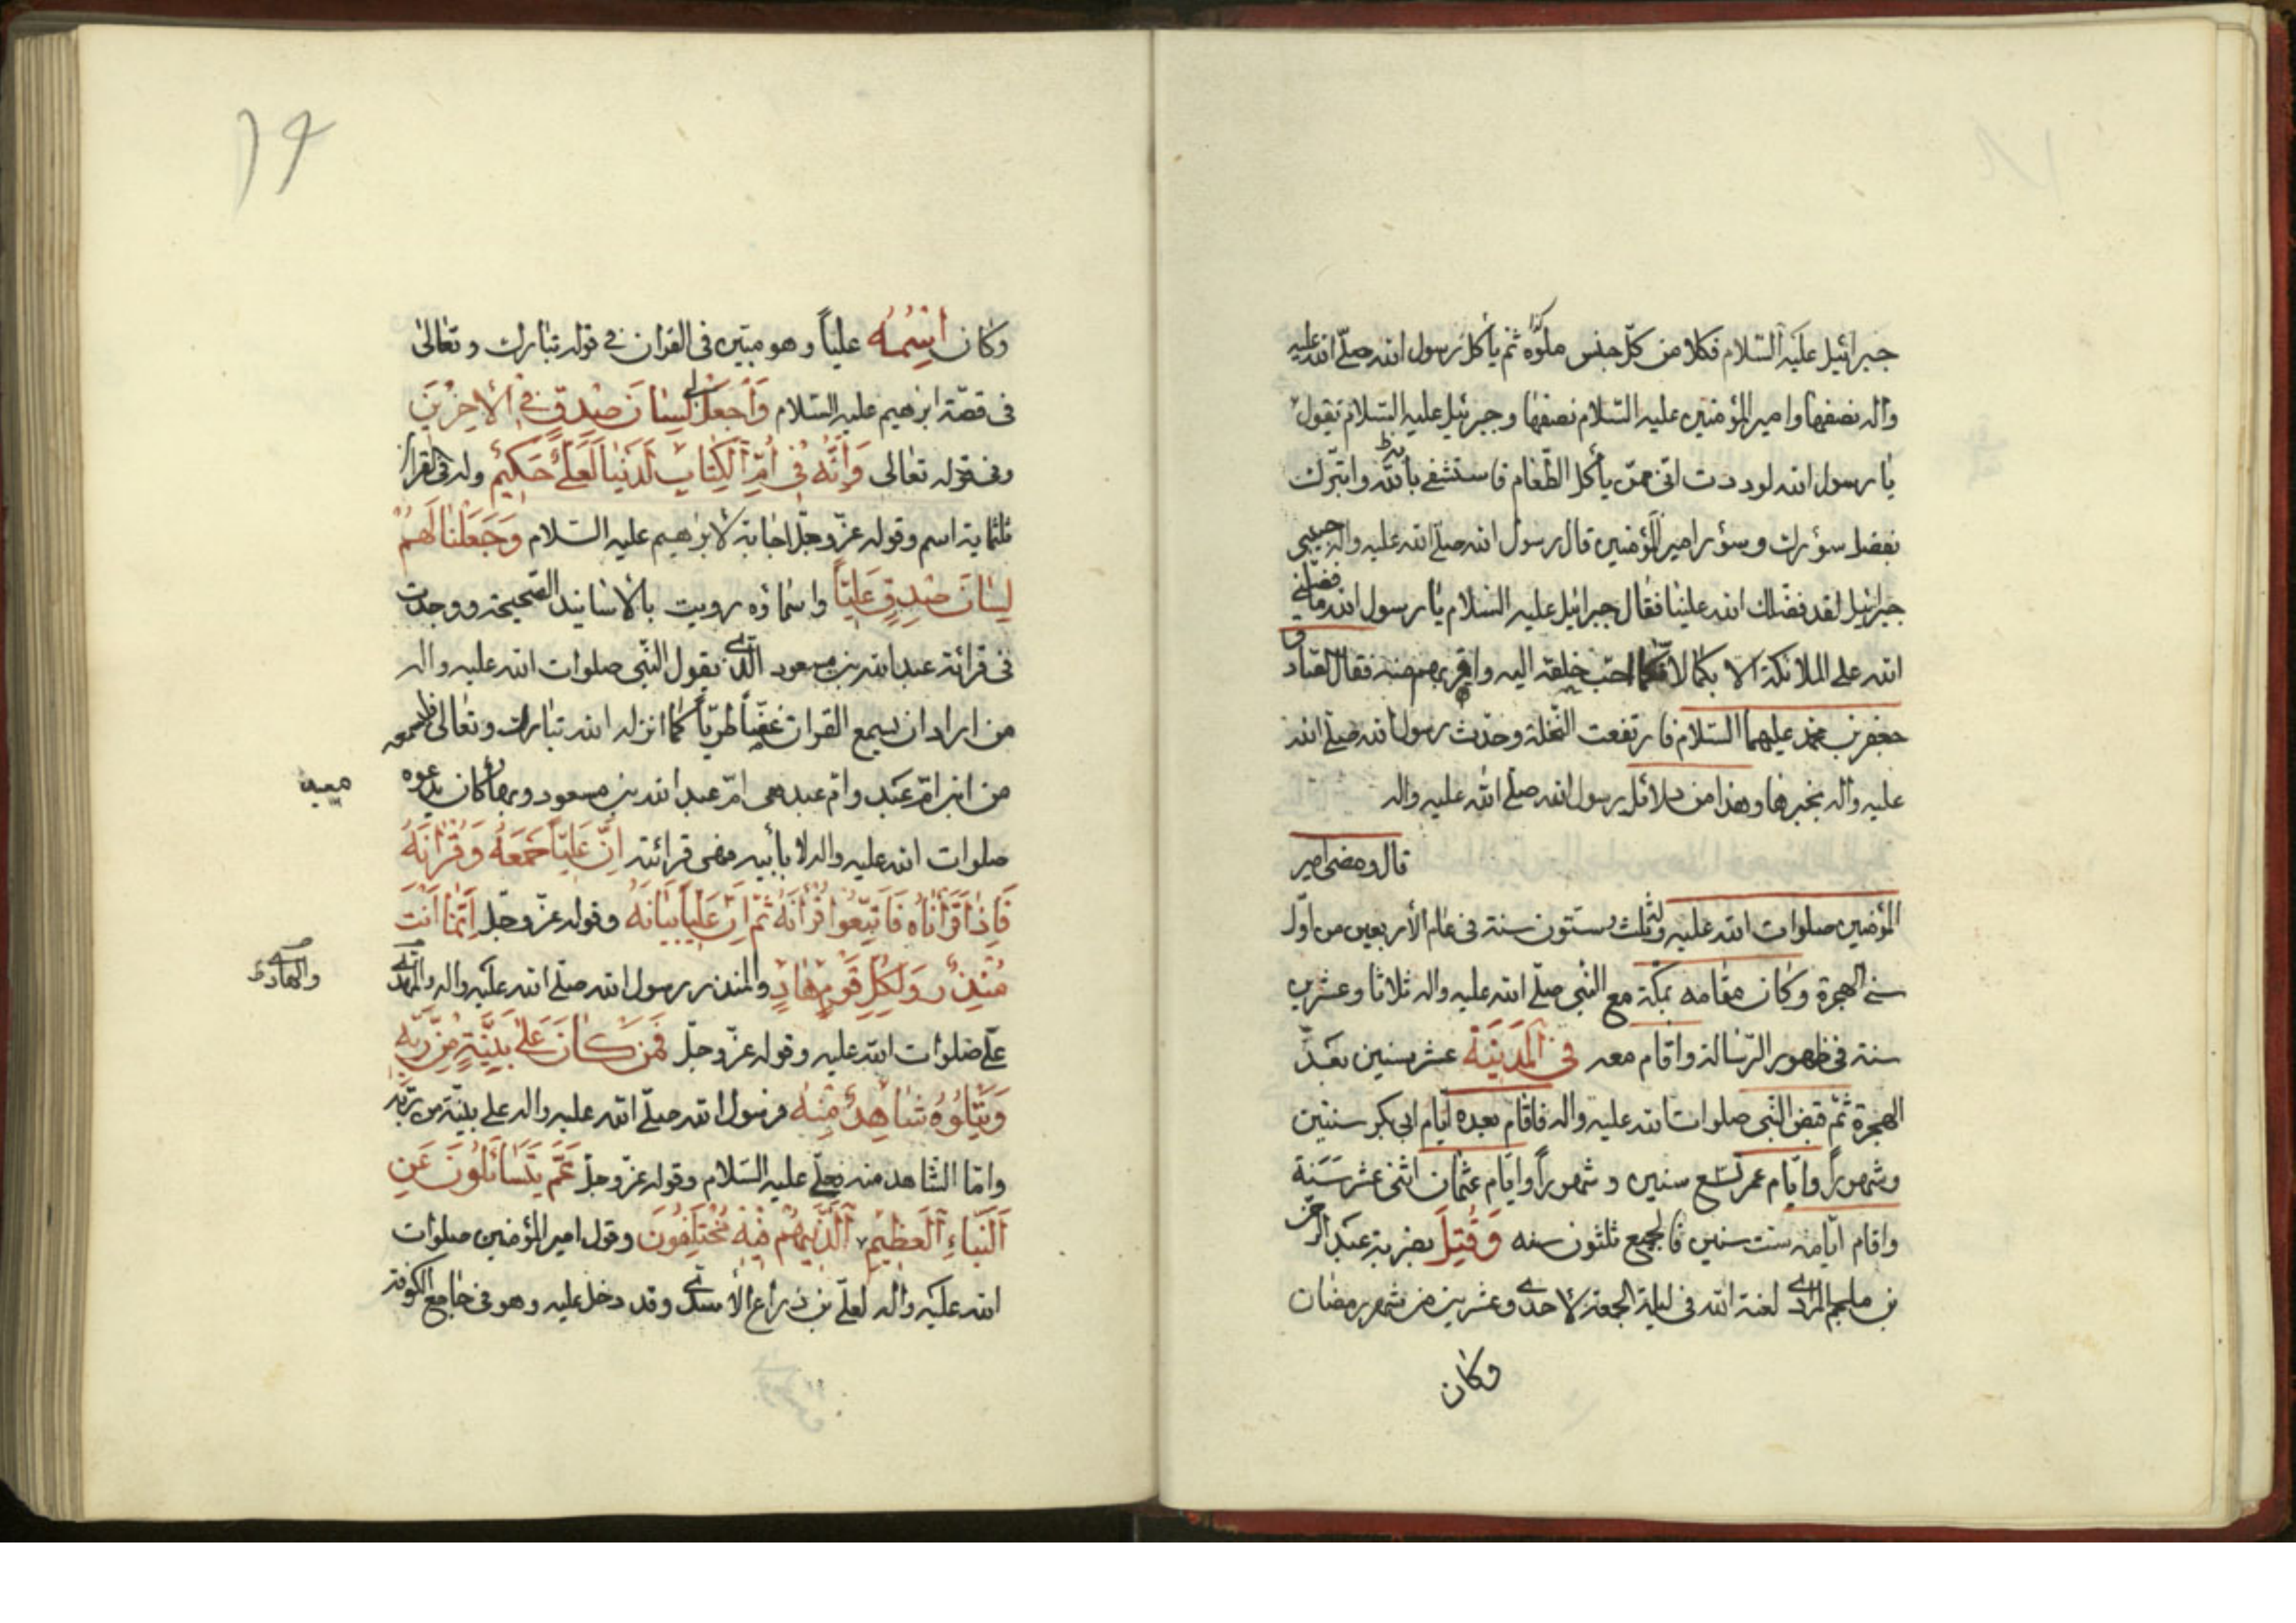 جبرائيل عليه السّلام فكلا من كلّ جنس ملوّه كذا ثم يأكل رسول الله صلّى الله عليه
واله نصفها وامير المؤمنين عليه السّلام نصفها وجبرئيل عليه السّلام يقول
يا رسول الله لوددت انّى ممّن يأكل الطّعام فاستشفى بالله واتبرّك
بفضل سؤرك وسؤر امير المؤمنين قال رسول الله صلّى الله عليه واله حبيبى
جبرائيل لقد فضّلك الله علينا فقال جبرائيل عليه السّلام يا رسول الله ما فضّلنى
الله على الملائكة الا بكما لانّكما احبّ خلقه اليه واقربهم منه فقال الصّادق
جعفر بن محمد عليهما السّلام فارتفعت النّخلة وحدّث رسول الله صلّى الله
عليه واله بخبرها وهذا من دلائل رسول الله صلّى الله عليه واله
قال ومضى امير
المؤمنين صلوات الله عليه وله ثلث وستّون سنة فى عام الأربعين من اوّل
سنى الهجرة وكان مقامه بمكّة مع النّبى صلّى الله عليه واله ثلاثا وعشرين
سنة فى ظهور الرّسالة واقام معه فى المدينة عشر سنين بعد
الهجرة ثمّ قبض النّبى صلوات الله عليه واله فاقام بعده ايّام ابى بكر سنتين
وشهوراً وايّام عمر تسع سنين وشهوراً وايّام عثمان اثنى عشر سنة
واقام ايّامه ستّ سنين فالجميع ثلثون سنه وقتل بضربة عبد الرّحمن
بن ملجم المرادى لعنة الله فى ليلة الجمعة لاحدى وعشرين من شهر رمضان
وكان
١٩
وكان اسمه علياً وهو مبيّن فى القران فى قوله تبارك وتعالى
فى قصّة ابرهيم عليه السّلام واجعل لى لسان صدق فى الاخرين
وفى قوله تعالى وانّه فى امّ الكتاب لدينا لعلىّ حكيم وله فى القران
ثلثماية اسم وقوله عزّ وجلّ اجابة لابرهيم عليه السّلام وجعلنا لهم
لسان صدق عليّاً واسماؤه رويت بالأسانيد الصّحيحة ووجدت
فى قرائة عبد الله بن مسعود الّذى يقول النّبى صلوات الله عليه واله
من اراد ان يسمع القران غضّاً طريّاً كما انزله الله تبارك وتعالى فليسمعه
من ابن امّ عبد وامّ عبد هى امّ عبد الله بن مسعود وبها كان يدعوه
صلوات الله عليه واله لا بأبيه ففى قرائته انّ عليّاً جمعه وقرانه
فاذا قراناه فاتبعوا قرانه ثم انّ علياً بيانه وقوله عزّ وجلّ انّما انت
منذر ولكلّ قوم هاد والمنذر رسول الله صلّى الله عليه واله
والهادى
علىّ صلوات الله عليه وقوله عزّ وجلّ فمن كان على بيّنة من ربّه
ويتلوه شاهد منه فرسول الله صلّى الله عليه واله على بيّنة من ربّه
وامّا الشّاهد منه فعلىّ عليه السّلام وقوله عزّ وجلّ عمّ يتسائلون عن
النّباء العظيم الّذى هم فيه مختلفون وقول امير المؤمنين صلوات
الله عليه واله لعلىّ بن ذراع الأسدى وقد دخل عليه وهو فى جامع الكوفة